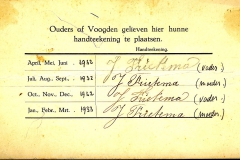 Ouders of Voogden gelieven hier hunne
handteekening te plaatsen.
Handteekening.
April, Mei, Juni 1932 J Friekma (vader.)
Juli, Aug., Sept. 1932 J Friekma (moeder.)
Oct., Nov., Dec. 1932 J Friekma (vader.)
Jan., Febr., Mrt. 1933 J Friekma (moeder.)